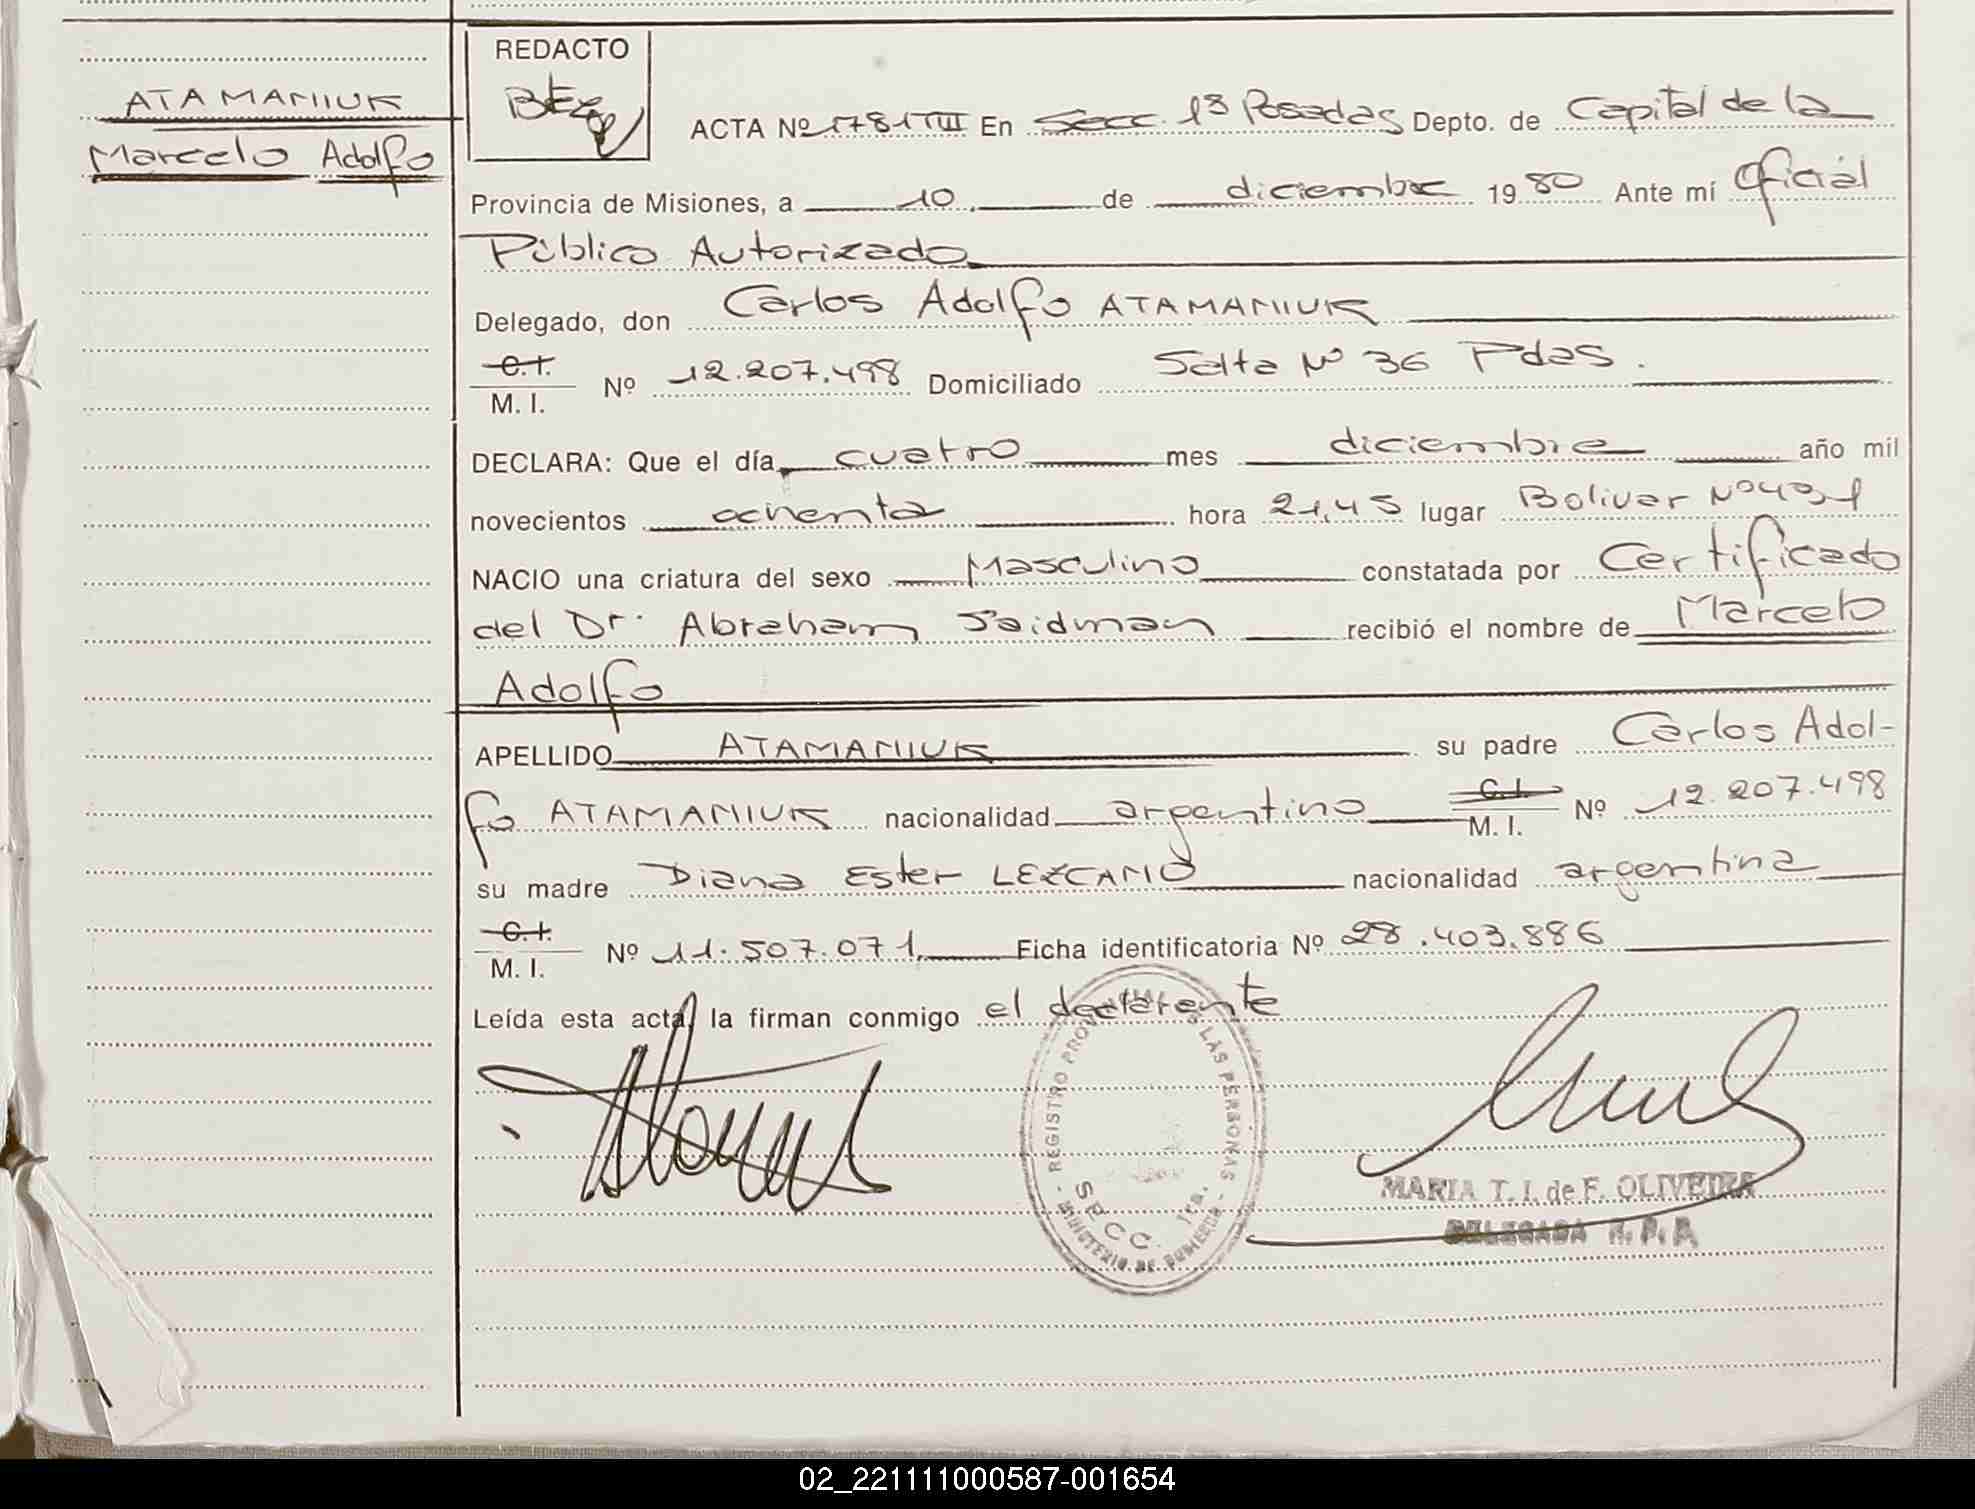 ATAMANIUK
Marcelo Adolfo
REDACTO
ACTA Nº 1781 TIII En Secc. 1ª Posadas Depto. de Capital de la
Provincia de Misiones, a 10 de diciembre 1980 Ante mí Oficial
Público Autorizado
Delegado, don Carlos Adolfo ATAMANIUK
C.I.
M. I. Nº 12.207.498 Domiciliado Salta Nº 36 Pdas.
DECLARA: Que el día cuatro mes diciembre año mil
novecientos ochenta hora 21,45 lugar Bolivar Nº
NACIO una criatura del sexo Masculino constatada por Certificado
del Dr. Abraham Saidman recibió el nombre de Marcelo
Adolfo
APELLIDO ATAMANIUK su padre Carlos Adol-
fo ATAMANIUK nacionalidad argentino C.I. M. I. Nº 12.207.498
su madre Diana Ester LEZCANO nacionalidad argentina
C.I.
M. I. Nº 11.507.071 Ficha identificatoria Nº 28.403.886
Leída esta acta, la firman conmigo el declarente
REGISTRO PROVINCIAL DE LAS PERSONAS
SECC. 1ra.
MINISTERIO DE GOBIERNO
MARIA T. I. de F. OLIVEIRA
DELEGADA R. P. P.
02_221111000587-001654